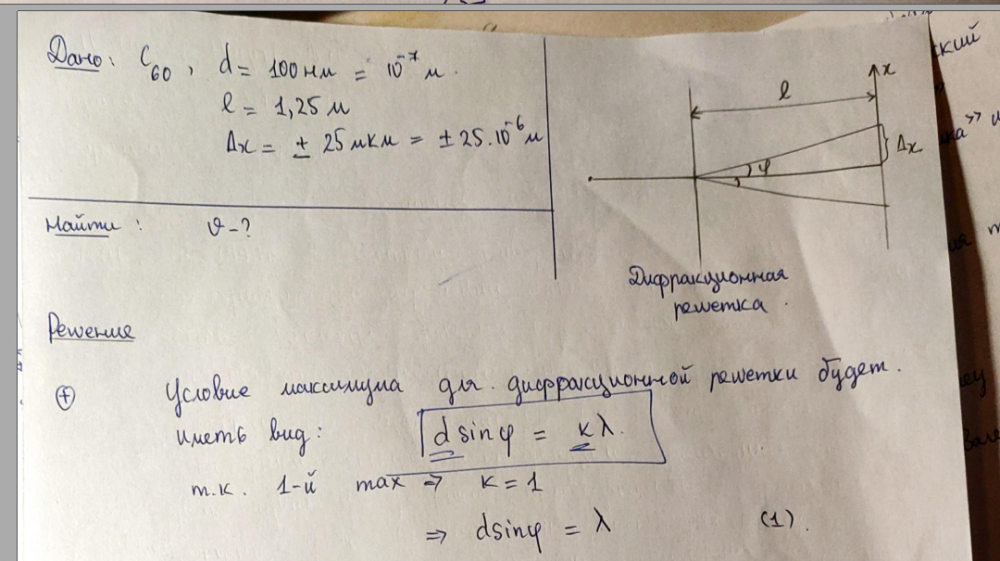 Дано: C₆₀, d = 100 нм = 10⁻⁷ м.
l = 1,25 м
Δx = ± 25 мкм = ± 25·10⁻⁶ м
Найти: υ - ?
l
x
φ
Δx
Дифракционная
решетка.
Решение
+ Условие максимума для дифракционной решетки будет.
иметь вид: d sinφ = kλ.
т.к. 1-й max ⇒ k = 1
⇒ d sinφ = λ (1).
ский